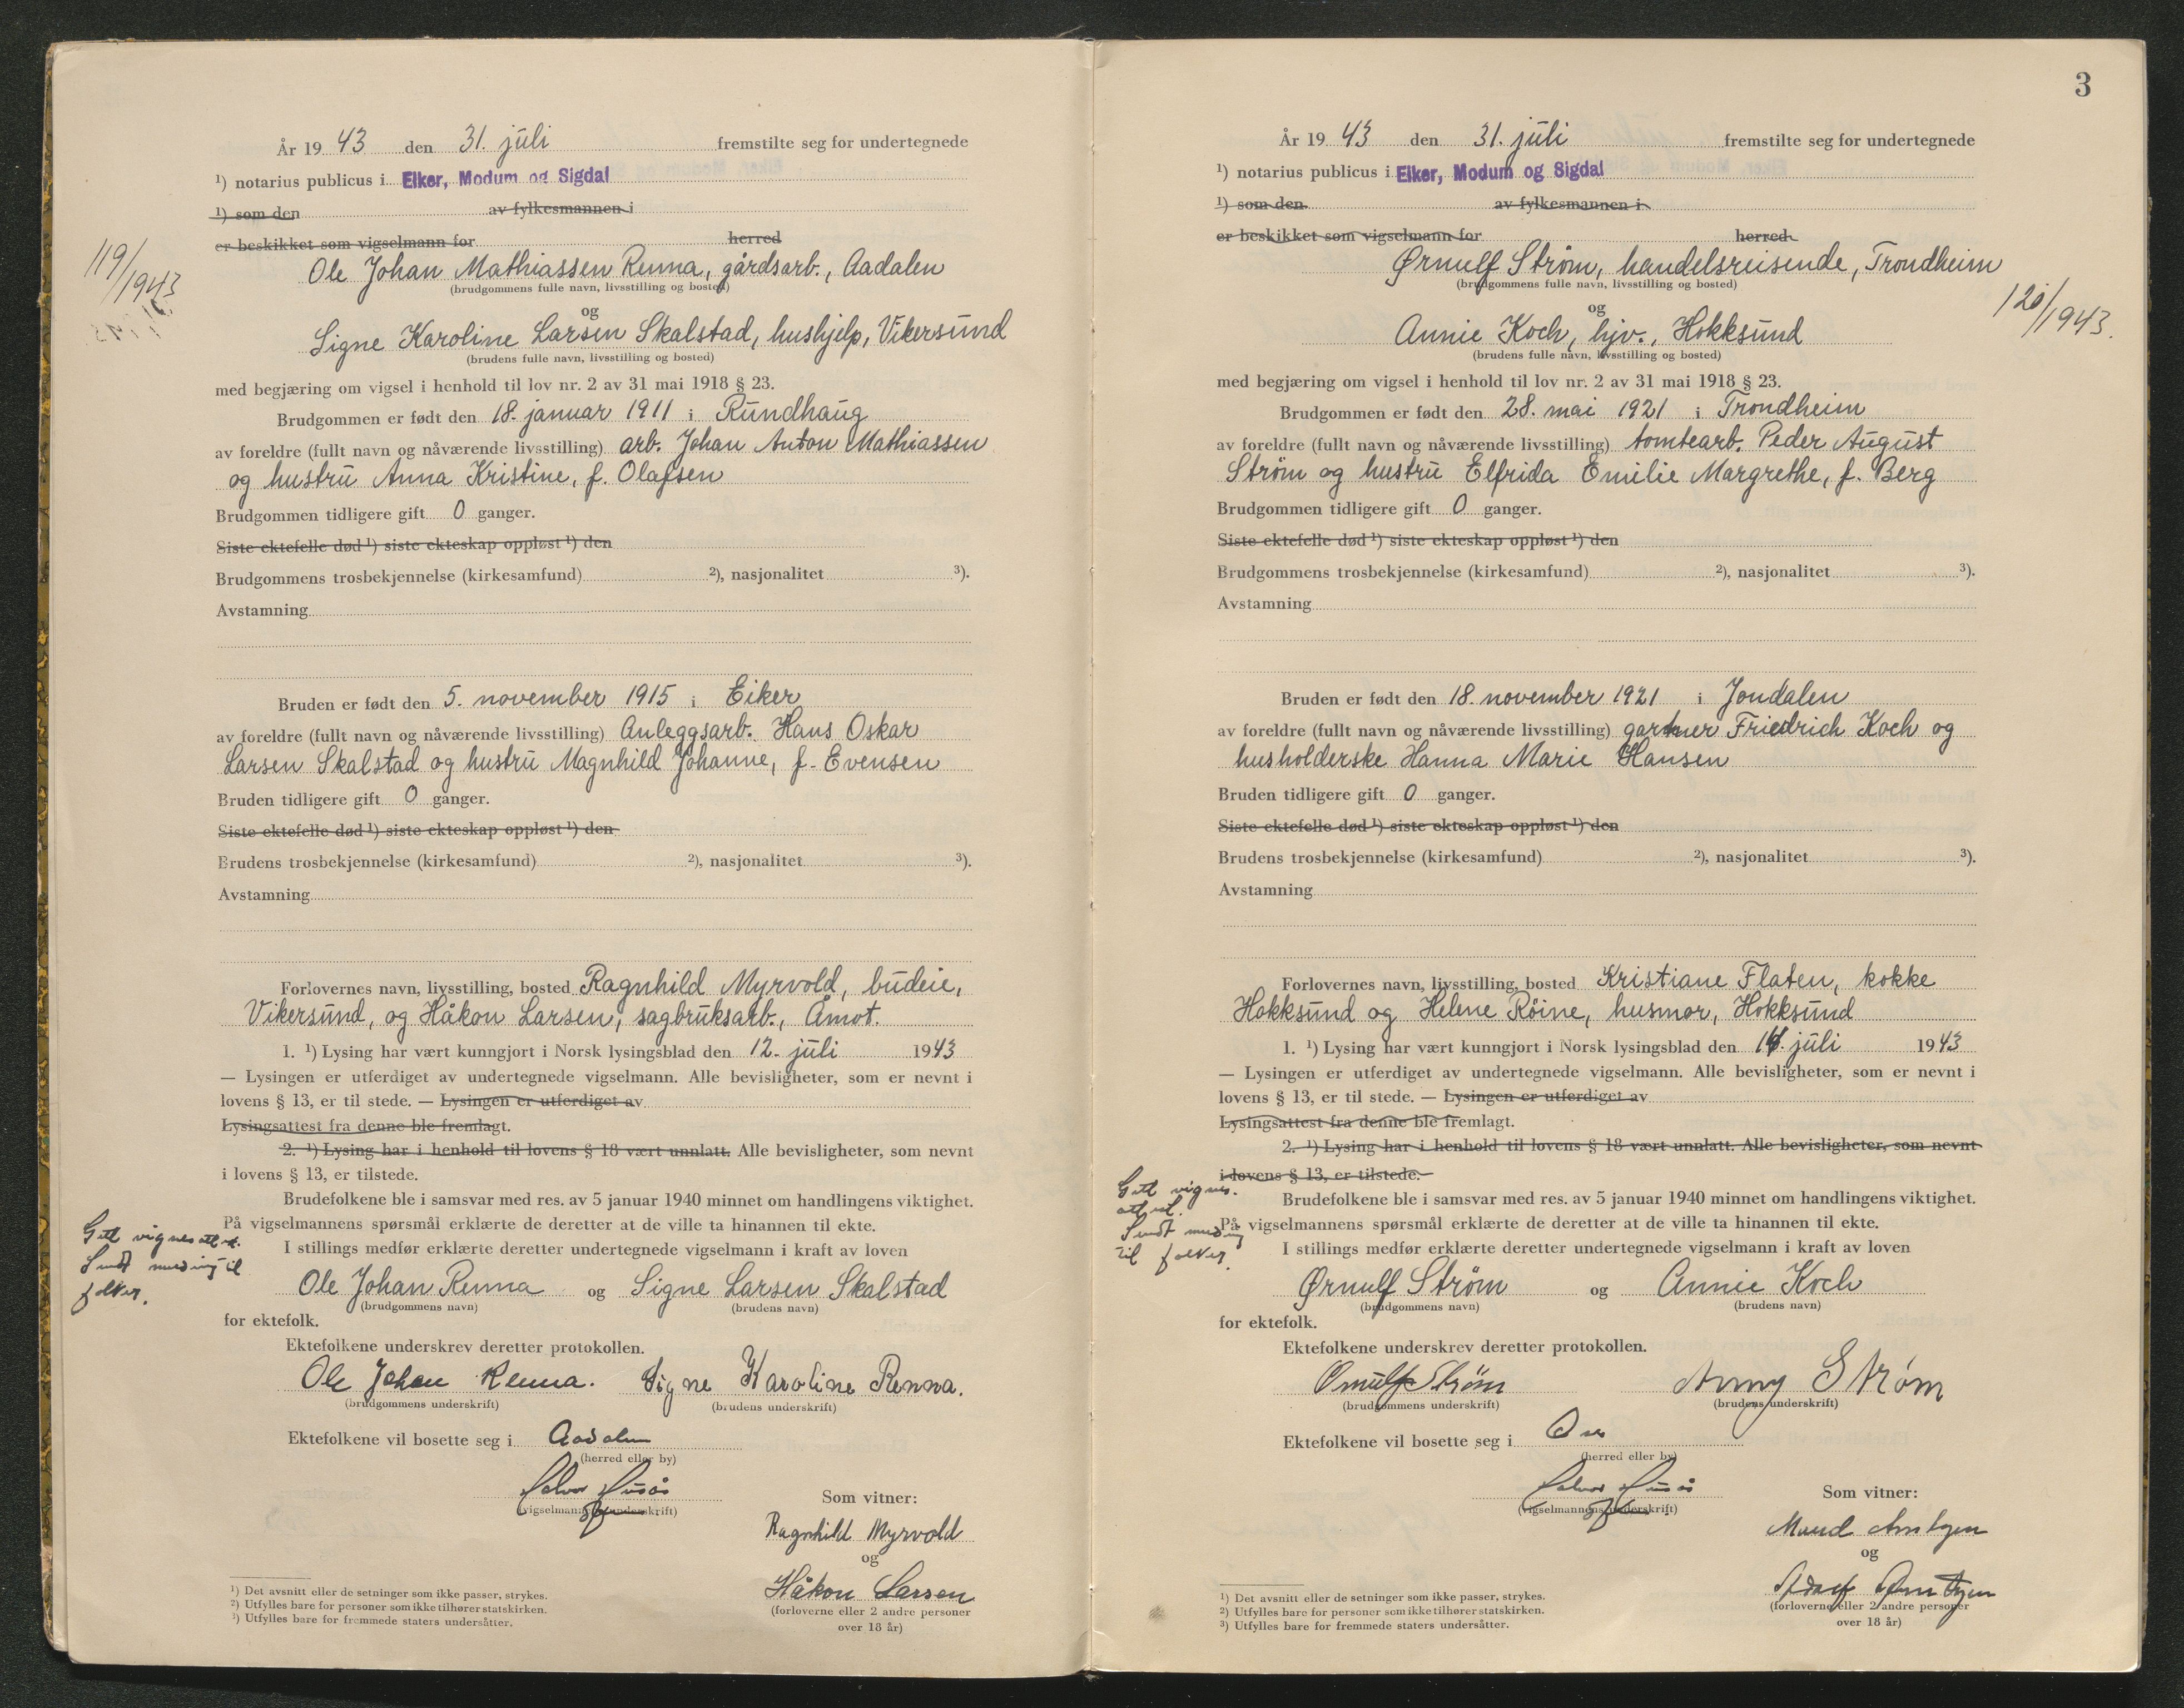 År 19 43 den 31. juli fremstilte seg for undertegnede
¹) notarius publicus i Eiker, Modum og Sigdal
¹) som den av fylkesmannen i
er beskikket som vigselmann for herred
119/1943
Ole Johan Mathiassen Renna, gårdsarb., Aadalen
(brudgommens fulle navn, livsstilling og bosted)
og
Signe Karoline Larsen Skalstad, hushjelp, Vikersund
(brudens fulle navn, livsstilling og bosted)
med begjæring om vigsel i henhold til lov nr. 2 av 31 mai 1918 § 23.
Brudgommen er født den 18. januar 1911 i Rundhaug
av foreldre (fullt navn og nåværende livsstilling) arb. Johan Anton Mathiassen
og hustru Anna Kristine, f. Olafsen
Brudgommen tidligere gift 0 ganger.
Siste ektefelle død ¹) siste ekteskap oppløst ¹) den
Brudgommens trosbekjennelse (kirkesamfund) ²), nasjonalitet ³).
Avstamning
Bruden er født den 5. november 1915 i Eiker
av foreldre (fullt navn og nåværende livsstilling) Anleggsarb. Hans Oskar
Larsen Skalstad og hustru Magnhild Johanne, f. Evensen
Bruden tidligere gift 0 ganger.
Siste ektefelle død ¹) siste ekteskap oppløst ¹) den
Brudens trosbekjennelse (kirkesamfund) ²), nasjonalitet ³).
Avstamning
Forlovernes navn, livsstilling, bosted Ragnhild Myrvold, budeie,
Vikersund, og Håkon Larsen, sagbruksarb., Åmot.
1. ¹) Lysing har vært kunngjort i Norsk lysingsblad den 12. juli 1943
— Lysingen er utferdiget av undertegnede vigselmann. Alle bevisligheter, som er nevnt i
lovens § 13, er til stede. — Lysingen er utferdiget av
Lysingsattest fra denne ble fremlagt.
2. ¹) Lysing har i henhold til lovens § 18 vært unnlatt. Alle bevisligheter, som nevnt
i lovens § 13, er tilstede.
Brudefolkene ble i samsvar med res. av 5 januar 1940 minnet om handlingens viktighet.
På vigselmannens spørsmål erklærte de deretter at de ville ta hinannen til ekte.
I stillings medfør erklærte deretter undertegnede vigselmann i kraft av loven
Gitt vignesattest.
Sendt melding til
folker.
Ole Johan Renna og Signe Larsen Skalstad
(brudgommens navn) (brudens navn)
for ektefolk.
Ektefolkene underskrev deretter protokollen.
Ole Johan Renna. Signe Karoline Renna.
(brudgommens underskrift) (brudens underskrift)
Ektefolkene vil bosette seg i Aadalen
(herred eller by)
(vigselmannens underskrift)
Som vitner:
Ragnhild Myrvold
og
Håkon Larsen
(forloverne eller 2 andre personer
over 18 år)
¹) Det avsnitt eller de setninger som ikke passer, strykes.
²) Utfylles bare for personer som ikke tilhører statskirken.
³) Utfylles bare for fremmede staters undersåtter.
3
År 19 43 den 31. juli fremstilte seg for undertegnede
¹) notarius publicus i Eiker, Modum og Sigdal
¹) som den av fylkesmannen i
er beskikket som vigselmann for herred
Ørnulf Strøm, handelsreisende, Trondheim
(brudgommens fulle navn, livsstilling og bosted)
120/1943.
og
Annie Koch, hjv., Hokksund
(brudens fulle navn, livsstilling og bosted)
med begjæring om vigsel i henhold til lov nr. 2 av 31 mai 1918 § 23.
Brudgommen er født den 28. mai 1921 i Trondheim
av foreldre (fullt navn og nåværende livsstilling) tomtearb. Peder August
Strøm og hustru Elfrida Emilie Margrethe, f. Berg
Brudgommen tidligere gift 0 ganger.
Siste ektefelle død ¹) siste ekteskap oppløst ¹) den
Brudgommens trosbekjennelse (kirkesamfund) ²), nasjonalitet ³).
Avstamning
Bruden er født den 18. november 1921 i Jondalen
av foreldre (fullt navn og nåværende livsstilling) gartner Friedrich Koch og
husholderske Hanna Marie Hansen
Bruden tidligere gift 0 ganger.
Siste ektefelle død ¹) siste ekteskap oppløst ¹) den
Brudens trosbekjennelse (kirkesamfund) ²), nasjonalitet ³).
Avstamning
Forlovernes navn, livsstilling, bosted Kristiane Flaten, kokke
Hokksund og Helene Röine, husmor, Hokksund
1. ¹) Lysing har vært kunngjort i Norsk lysingsblad den juli 1943
— Lysingen er utferdiget av undertegnede vigselmann. Alle bevisligheter, som er nevnt i
lovens § 13, er til stede. — Lysingen er utferdiget av
Lysingsattest fra denne ble fremlagt.
2. ¹) Lysing har i henhold til lovens § 18 vært unnlatt. Alle bevisligheter, som nevnt
i lovens § 13, er tilstede.
Gitt vignes.
attest.
Sendt melding
til folker.
Brudefolkene ble i samsvar med res. av 5 januar 1940 minnet om handlingens viktighet.
På vigselmannens spørsmål erklærte de deretter at de ville ta hinannen til ekte.
I stillings medfør erklærte deretter undertegnede vigselmann i kraft av loven
Ørnulf Strøm og Annie Koch
(brudgommens navn) (brudens navn)
for ektefolk.
Ektefolkene underskrev deretter protokollen.
Ørnulf Strøm Anny Strøm
(brudgommens underskrift) (brudens underskrift)
Ektefolkene vil bosette seg i
(herred eller by)
(vigselmannens underskrift)
Som vitner:
og
(forloverne eller 2 andre personer
over 18 år)
¹) Det avsnitt eller de setninger som ikke passer, strykes.
²) Utfylles bare for personer som ikke tilhører statskirken.
³) Utfylles bare for fremmede staters undersåtter.